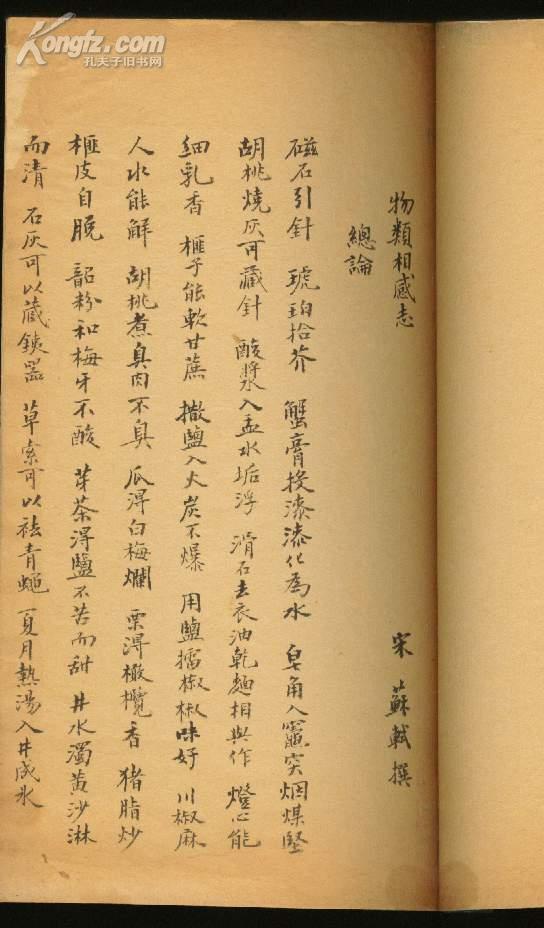 Kongfz.com
孔夫子旧书网
物類相感志 宋 蘇軾撰
總論
磁石引針 琥珀拾芥 蟹膏投漆漆化為水 皂角入竈突烟煤墜
胡桃燒灰可藏針 酸漿入盂水垢浮 滑石去衣油乾麵相與作 燈心能
細乳香 榧子能軟甘蔗 撒鹽入火炭不爆 用鹽擂椒椒味好 川椒麻
人水能解 胡桃煮臭肉不臭 瓜淂白梅爛 栗淂橄欖香 猪脂炒
榧皮自脫 韶粉和梅牙不酸 芽茶淂鹽不苦而甜 井水濁黃沙淋
而清 石灰可以藏鐵器 草索可以祛青蠅 夏月熱湯入井成氷